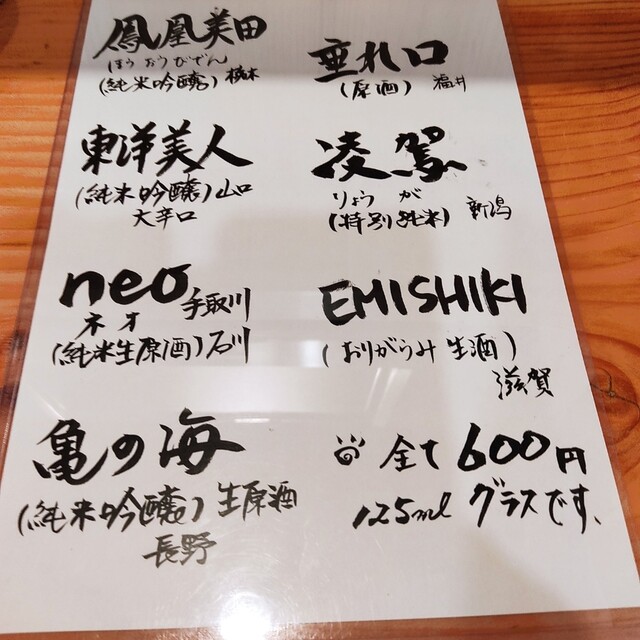 鳳凰美田
ほうおうびでん
(純米吟醸) 栃木
垂れ口
(原酒) 福井
東洋美人
(純米吟醸) 山口
大辛口
凌駕
りょうが
(特別純米) 新潟
neo 手取川
ネオ
(純米生原酒) 石川
EMISHIKI
(おりがらみ 生酒)
滋賀
亀の海
(純米吟醸) 生原酒
長野
全て 600円
125ml グラスです、